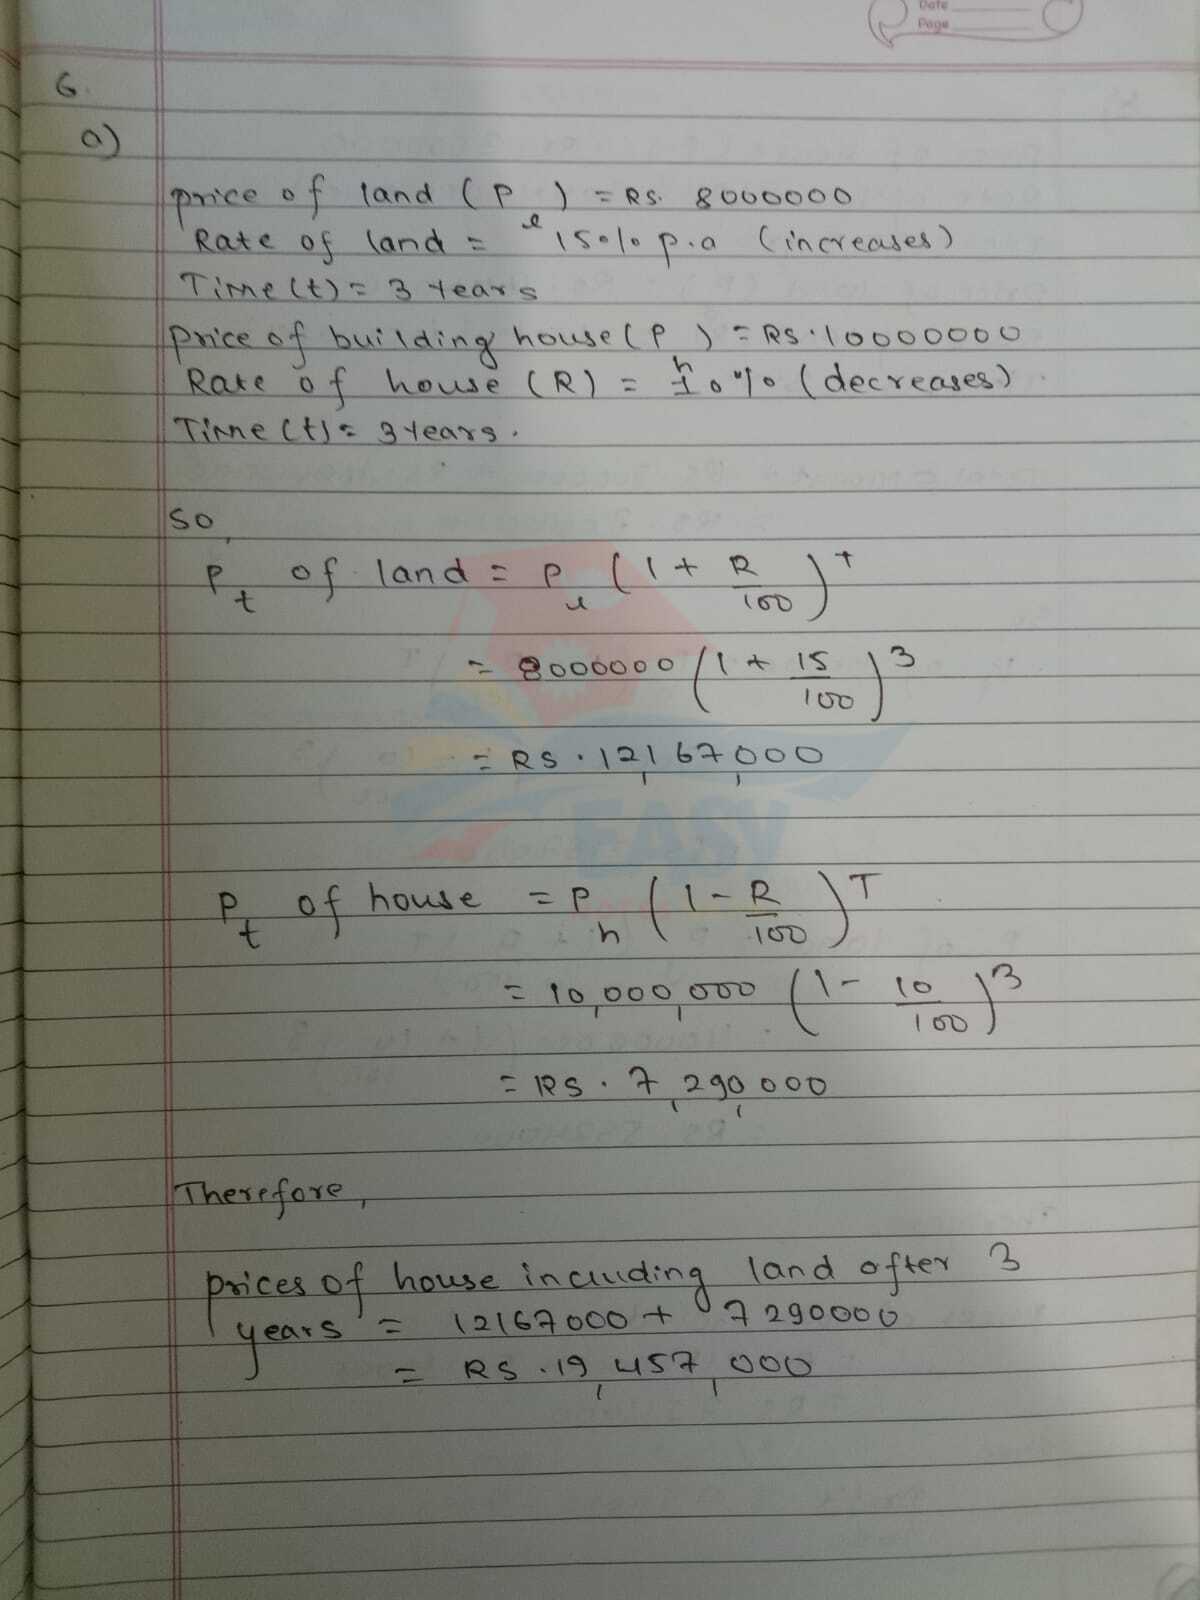 Date
Page
6.
a)
price of land (Pl) = Rs. 8000000
Rate of land = 15% p.a (increases)
Time (t) = 3 years
price of building house (Ph) = Rs. 10000000
Rate of house (R) = 10% (decreases)
Time (t) = 3 years.
so,
Pt of land = Pl (1 + R/100)^T
= 8000000 (1 + 15/100)^3
= Rs. 12,167,000
EASY
Pt of house = Ph (1 - R/100)^T
= 10,000,000 (1 - 10/100)^3
= Rs. 7,290,000
Therefore,
prices of house including land after 3
years = 12167000 + 7290000
= Rs. 19,457,000